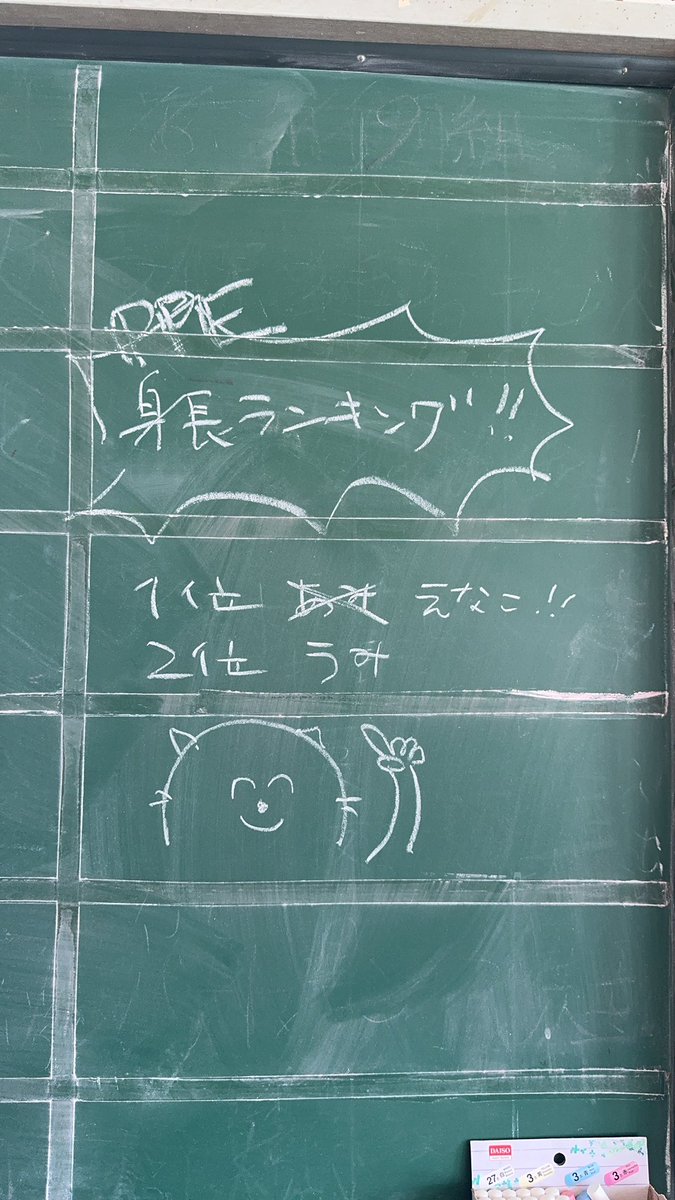 身長ランキング!!
1位 えなこ!!
2位 うみ
DAISO
27 白
3 青
3 赤